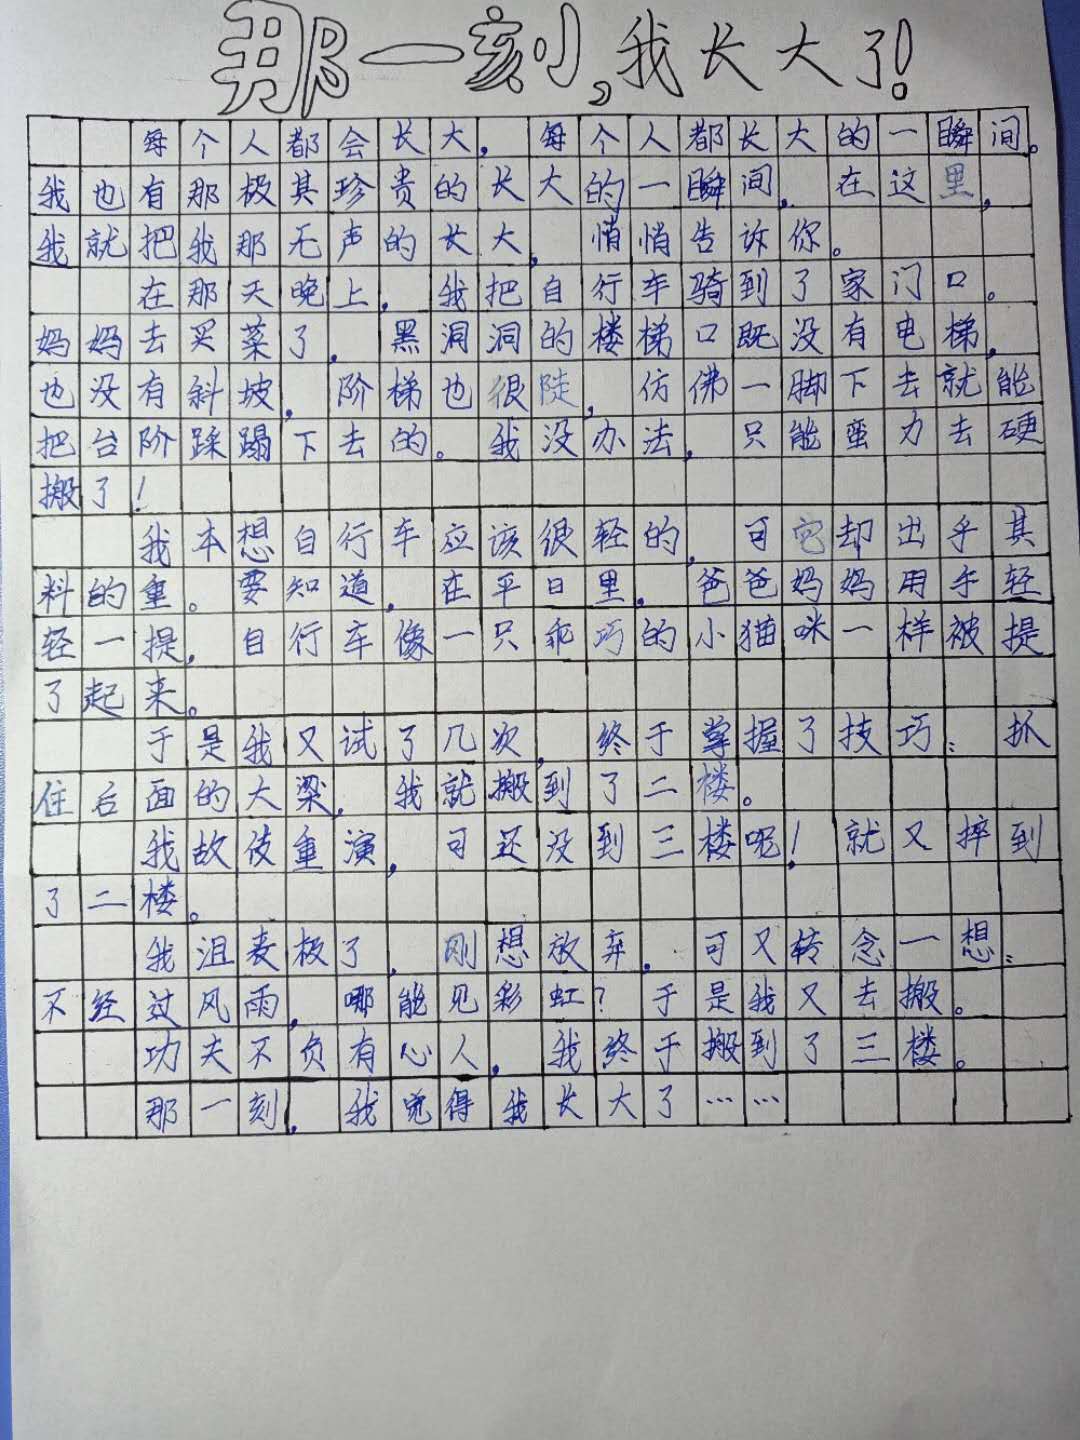 那一刻,我长大了!
每个人都会长大,每个人都长大的一瞬间。
我也有那极其珍贵的长大的一瞬间,在这里,
我就把我那无声的长大,悄悄告诉你。
在那天晚上,我把自行车骑到了家门口。
妈妈去买菜了,黑洞洞的楼梯口既没有电梯,
也没有斜坡,阶梯也很陡,仿佛一脚下去就能
把台阶蹂蹋下去的。我没办法,只能蛮力去硬
搬了!
我本想自行车应该很轻的,可它却出乎其
料的重。要知道,在平日里,爸爸妈妈用手轻
轻一提,自行车像一只乖巧的小猫咪一样被提
了起来。
于是我又试了几次,终于掌握了技巧:抓
住后面的大梁,我就搬到了二楼。
我故伎重演,可还没到三楼呢!就又摔到
了二楼。
我沮丧极了,刚想放弃,可又转念一想:
不经过风雨,哪能见彩虹?于是我又去搬。
功夫不负有心人,我终于搬到了三楼。
那一刻,我觉得我长大了……